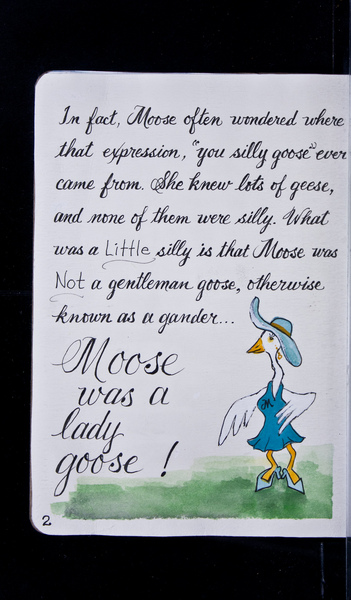 In fact, Moose often wondered where
that expression, "you silly goose" ever
came from. She knew lots of geese,
and none of them were silly. What
was a Little silly is that Moose was
Not a gentleman goose, otherwise
known as a gander...
Moose
was a
lady
goose !
M
2